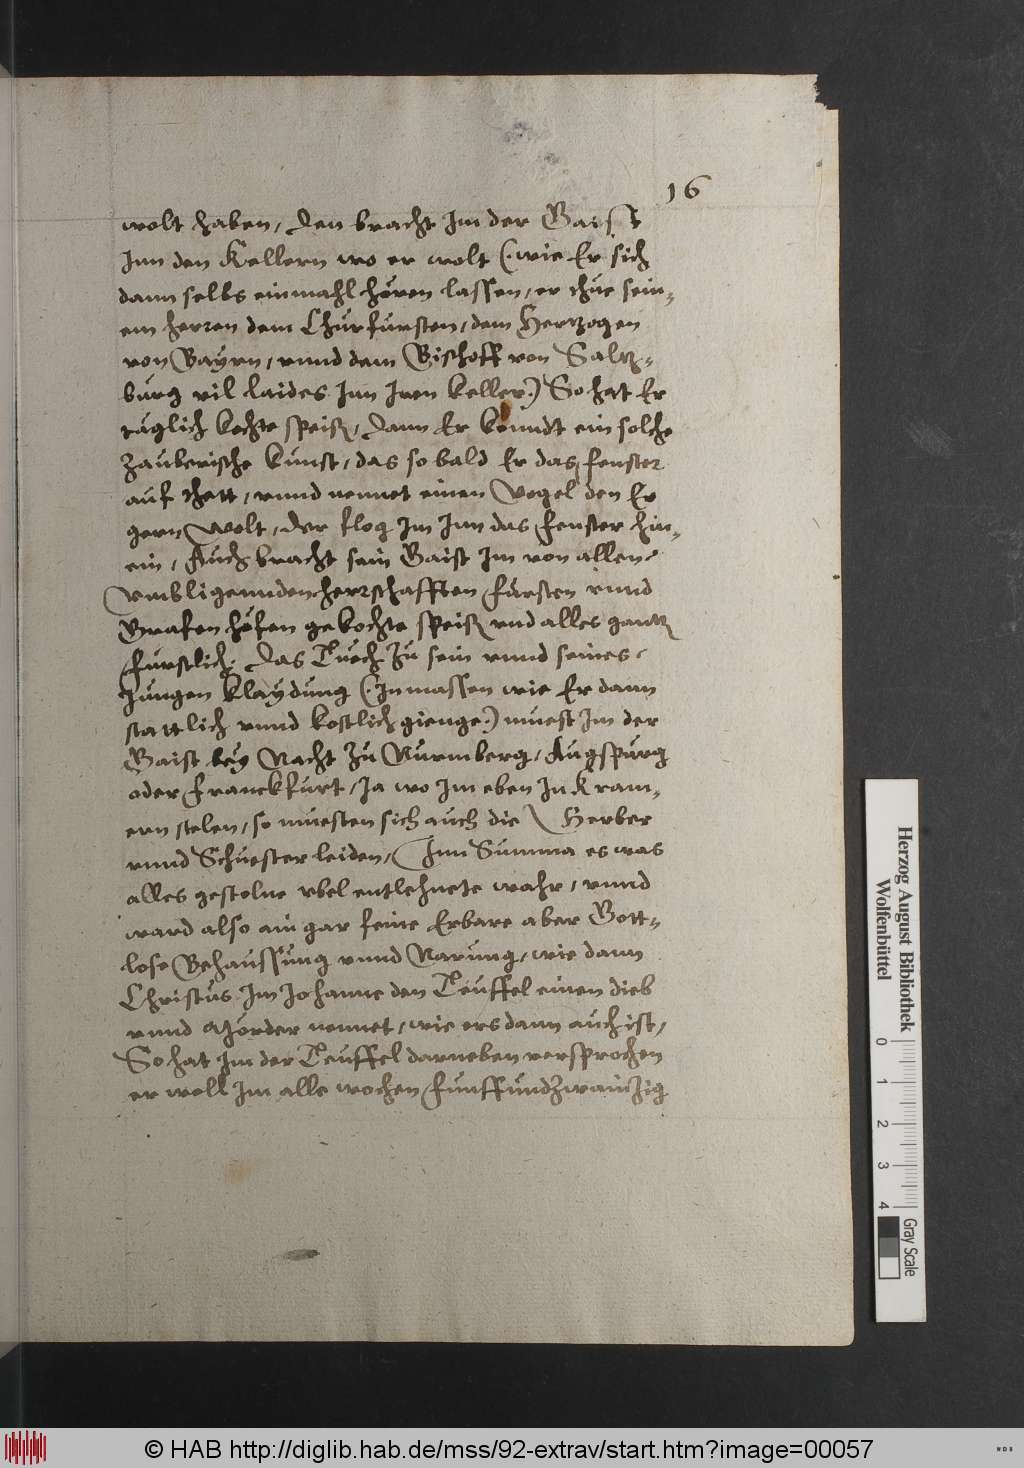 16
wolt haben, Den bracht Im der Gaist
Inn den Kellern wo er wolt (wie Er sich
dann selbs einmahl hören lassen, er thue sein-
em herren dem Churfürsten, dem Hertzogen
von Bayrn, vnnd dem Bischoff von Saltz-
burg vil laides Inn Iren keller.) So hat Er
täglich kochte speiß, Dann Er konndt ein solche
Zauberische kunst, das so bald Er das fenster
auf thett, vnnd nennet einen Vogel den Er
gern wolt, Der flog Im Inn das fenster hin-
ein, Auch bracht sein Gaist Im von allen
Vmbligennden herrschafften fürsten vnnd
Grafen höfen gekochte speiß vnd alles gantz
fürstlich. Das Tuech Zu sein vnnd seines
Jungen klaydung (Inmassen wie Er dann
stattlich vnnd kostlich gienge.) muest Im der
Gaist bey Nacht Zu Nürmberg, Augspurg
oder Franckfurt, Ja wo Im eben In Kram-
ern stelen, so muesten sich auch die Gerber
vnnd Schuester leiden, Inn Summa es was
alles gestolne vbel entlehnete wahr, vnnd
ward also ain gar feine Erbare aber Gott-
lose Behaussung vnnd Narung, wie dann
Christus Im Johanne den Teuffel einen dieb
vnnd Mörder nennet, wie ers dann auch ist,
So hat Im der Teuffel darneben versprochen
er woll Im alle wochen fünffundzwaintzig
Herzog August Bibliothek
Wolfenbüttel
0
1
2
3
4
Gray Scale
© HAB http://diglib.hab.de/mss/92-extrav/start.htm?image=00057
WDB